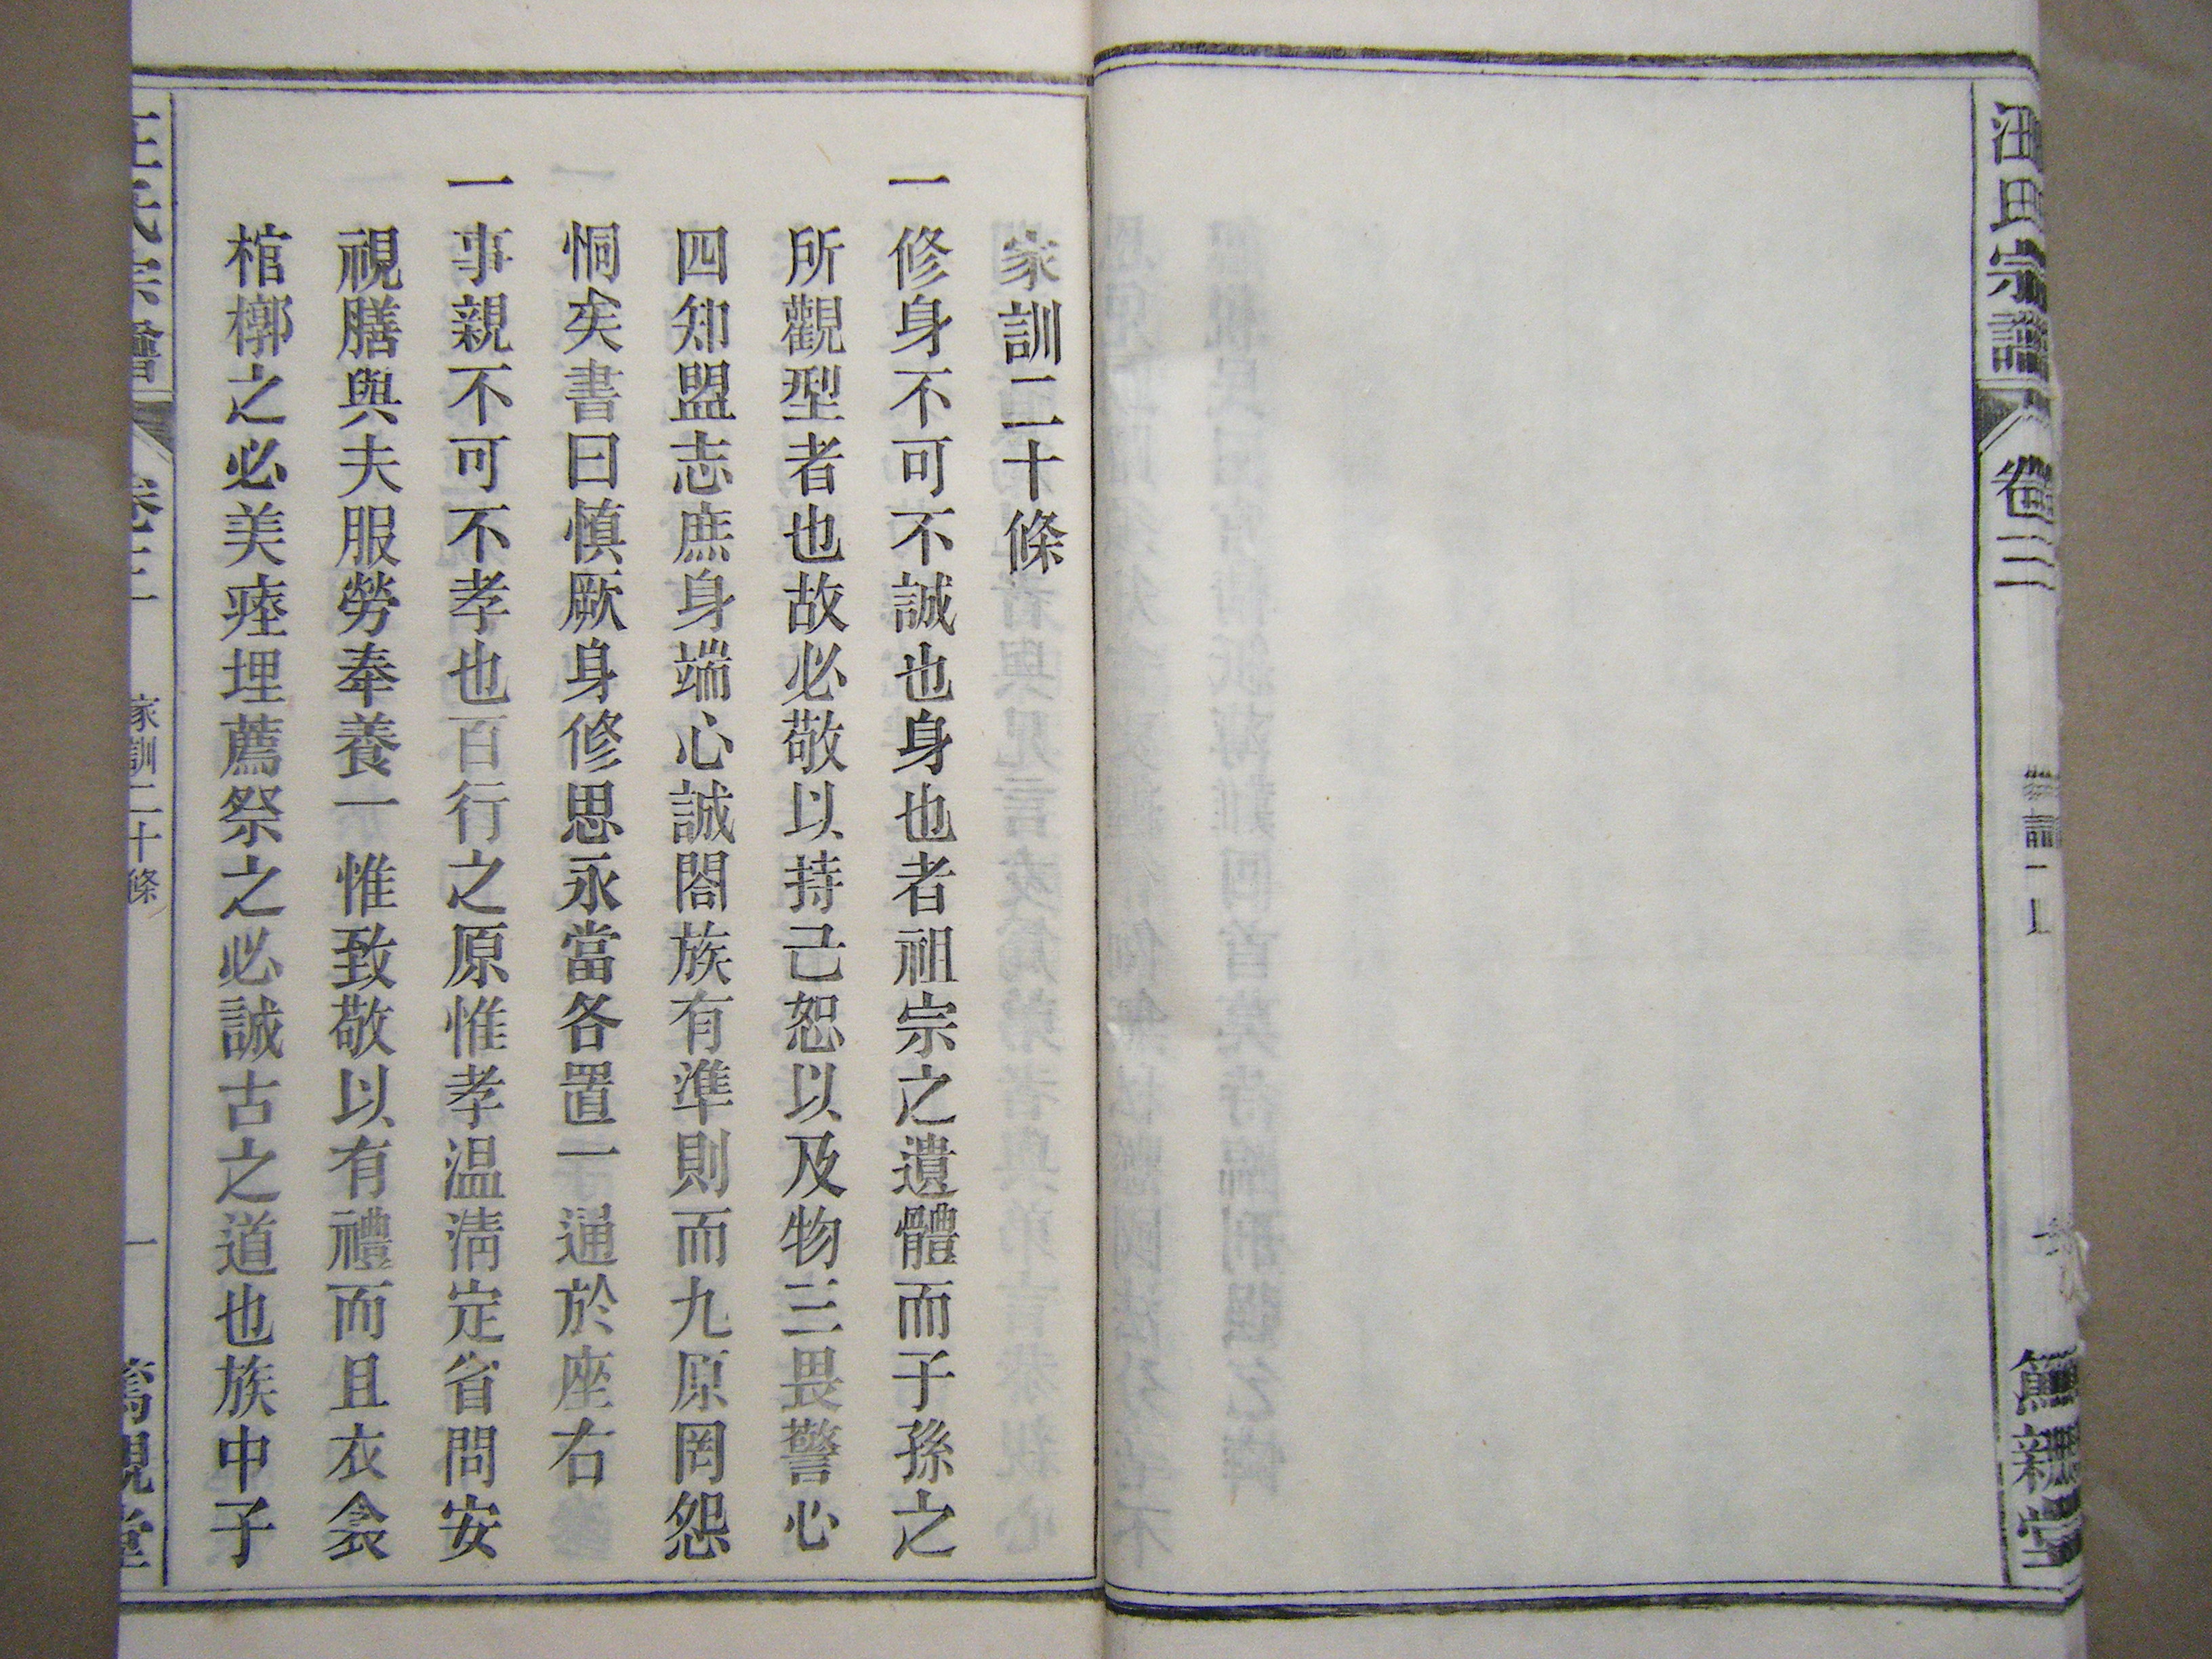 汪氏宗譜
卷三
篤親堂
家訓二十條
一修身不可不誠也身也者祖宗之遺體而子孫之
所觀型者也故必敬以持己恕以及物三畏警心
四知盟志庶身端心誠閤族有準則而九原罔怨
恫矣書曰慎厥身修思永當各置一通於座右
一事親不可不孝也百行之原惟孝温凊定省問安
視膳與夫服勞奉養一惟致敬以有禮而且衣衾
棺槨之必美瘞埋薦祭之必誠古之道也族中子
家訓二十條
一